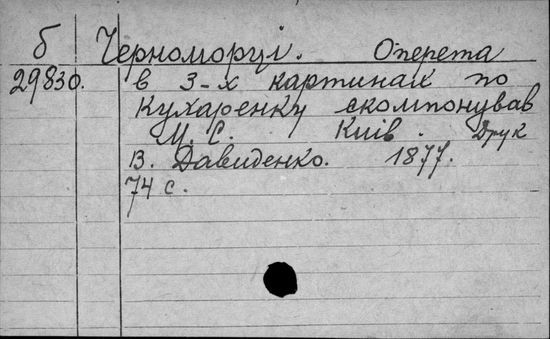 б Черноморці. Оперета
29830. в 3-х картинах по
Кухаренку скомпонував
М. С. Київ. Друк
В. Давиденко. 1877.
74 с.